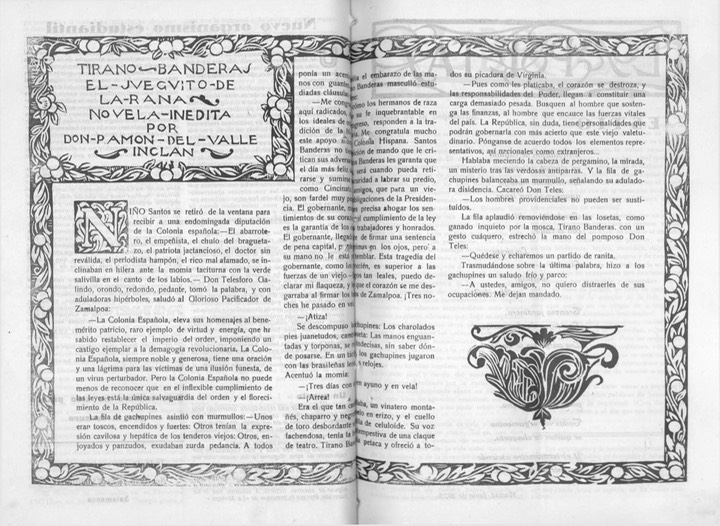 TIRANO BANDERAS
EL JVEGUITO DE
LA RANA
NOVELA INEDITA
POR
DON RAMON DEL VALLE
INCLAN
NIÑO Santos se retiró de la ventana para
recibir a una endomingada diputación
de la Colonia española:—El abarrote-
ro, el empeñista, el chulo del bragueta-
zo, el patriota jactancioso, el doctor sin
reválida, el periodista hampón, el rico mal afamado, se in-
clinaban en hilera ante la momia taciturna con la verde
salivilla en el canto de los labios.— Don Telesforo Ga-
lindo, orondo, redondo, pedante, tomó la palabra, y con
aduladoras hipérboles, saludó al Glorioso Pacificador de
Zamalpoa:
—La Colonia Española, eleva sus homenajes al bene-
mérito patricio, raro ejemplar de virtud y energía, que ha
sabido restablecer el imperio del orden, imponiendo un
castigo ejemplar a la demagogia revolucionaria. La Colo-
nia Española, siempre noble y generosa, tiene una oración
y una lágrima para las víctimas de una ilusión funesta, de
un virus perturbador. Pero la Colonia Española no puede
menos de reconocer que en el inflexible cumplimiento de
las leyes está la única salvaguardia del orden y el floreci-
miento de la República.
La fila de gachupines asintió con murmullos:—Unos
eran toscos, encendidos y fuertes: Otros tenían la expre-
sión cavilosa y hepática de los tenderos viejos: Otros, en-
joyados y panzudos, exudaban zurda pedancia. A todos
ponía un el embarazo de las ma-
nos con Banderas masculló estu-
diadas
—Me cómo los hermanos de raza
aquí radicados, fe inquebrantable en
los ideales de responden a la tra-
dición de la Me congratula mucho
este apoyo Colonia Hispana. Santos
Banderas no de mando que le cri-
tican sus Banderas les garanta que
el día más será cuando pueda reti-
rarse y a labrar su predio,
como que para un vie-
jo, son fardel muy de la Presiden-
cia. El gobernante, precisa ahogar los sen-
timientos de su cumplimiento de la ley
es la garantía de los trabajadores y honrados.
El gobernante, de firmar una sentencia
de pena capital, en los ojos, pero a
su mano no le Esta tragedia del
gobernante, como es superior a las
fuerzas de un viejo. tan leales, puedo de-
clarar mi flaqueza, y que el corazón se me des-
garraba al firmar los de Zamalpoa. ¡Tres no-
ches he pasado en
—¡Atiza!
Se descompuso Los charolados
pies juanetudos, Las manos enguan-
tadas y torponas, se sin saber dón-
de posarse. En un los gachupines jugaron
con las brasileñas relojes.
Acentuó la momia:
—¡Tres días con ayuno y en vela!
—¡Arrea!
Era el que tan un vinatero monta-
ñés, chaparro y en erizo, y el cuello
de toro desbordante celuloide. Su voz
fachendosa, tenía la de una claque
de teatro. Tirano petaca y ofreció a to-
dos su picadura de Virginia.
—Pues como les platicaba, el corazón se destroza, y
las responsabilidades del Poder, llegan a constituir una
carga demasiado pesada. Busquen al hombre que sosten-
ga las finanzas, al hombre que encauce las fuerzas vitales
del país. La República, sin duda, tiene personalidades que
podrán gobernarla con más acierto que este viejo valetu-
dinario. Pónganse de acuerdo todos los elementos repre-
sentativos, así nacionales como extranjeros...
Hablaba meciendo la cabeza de pergamino, la mirada,
un misterio tras las verdosas antiparras. Y la fila de ga-
chupines balanceaba un murmullo, señalando su adulado-
ra disidencia. Cacareó Don Teles:
—Los hombres providenciales no pueden ser susti-
tuídos.
La fila aplaudió removiéndose en las losetas, como
ganado inquieto por la mosca. Tirano Banderas, con un
gesto cuáquero, estrechó la mano del pomposo Don
Teles:
—Quédese y echaremos un partido de ranita.
Trasmudándose sobre la última palabra, hizo a los
gachupines un saludo frío y parco:
—A ustedes, amigos, no quiero distraerles de sus
ocupaciones. Me dejan mandado.